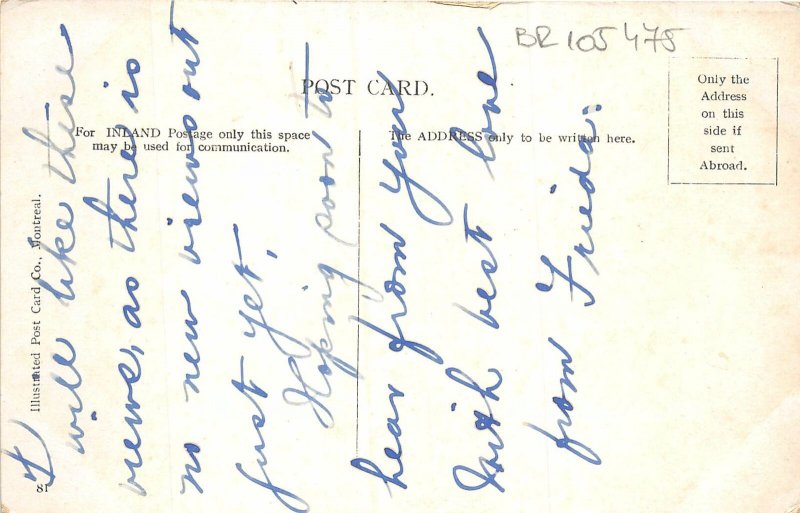 BR 105 475
POST CARD.
For INLAND Postage only this space
may be used for communication.
The ADDRESS only to be written here.
Only the
Address
on this
side if
sent
Abroad.
Illustrated Post Card Co., Montreal.
81
I
will like these
views, as there is
no new views out
just yet.
Hoping soon to
hear from you
With best love
from Frieda.